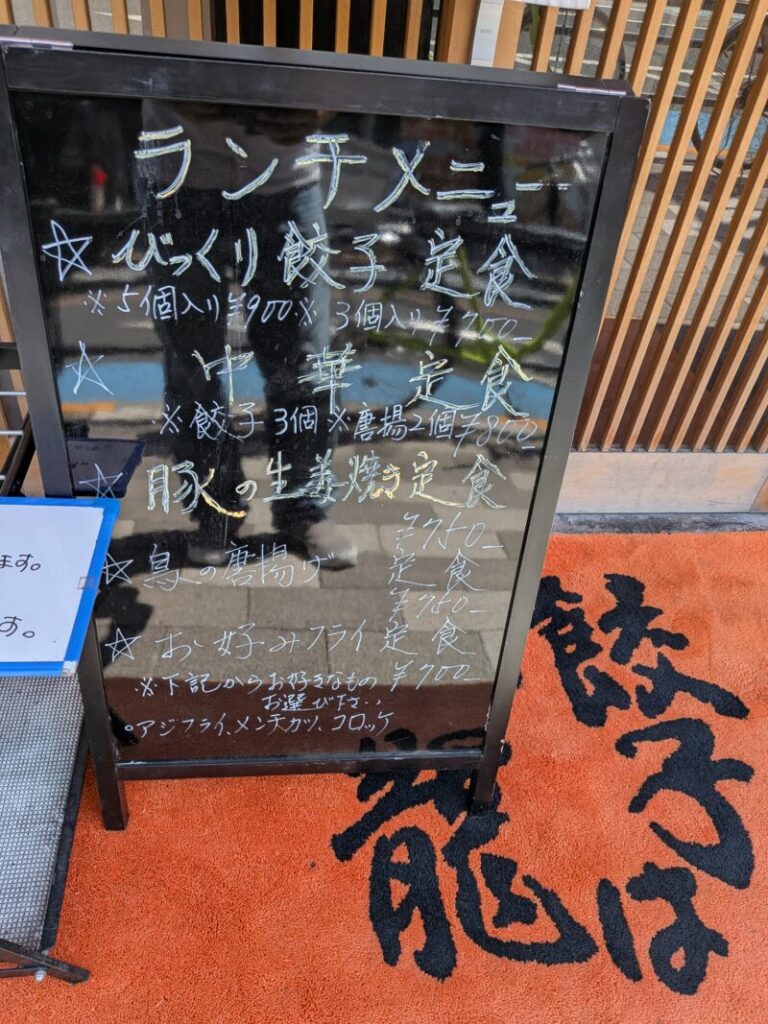 ランチメニュー
☆びっくり餃子定食
※5個入り¥900 ※3個入り¥700-
☆中華定食
※餃子3個 ※唐揚2個¥800-
☆豚の生姜焼き定食
¥750-
☆鳥の唐揚げ定食
¥750-
☆お好みフライ定食
¥700-
※下記からお好きなもの
お選び下さい。
○アジフライ、メンチカツ、コロッケ
ます。
す。
餃子は
龍